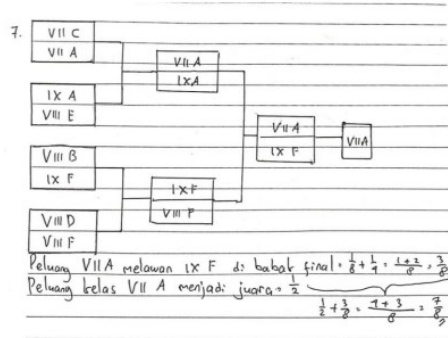 7.
VII C
VII A
IX A
VIII E
VIII B
IX F
VIII D
VIII F
VII A
IX A
IX F
VIII F
VII A
IX F
VII A
Peluang VII A melawan IX F di babak final = 1/8 + 1/4 = 1+2/8 = 3/8
Peluang kelas VII A menjadi juara = 1/2
1/2 + 3/8 = 4+3/8 = 7/8